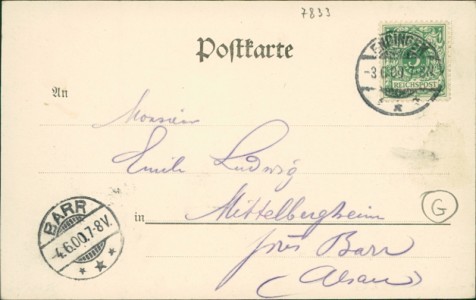 7833
Postkarte
ENDINGEN
-3.6.00.7-8N.
5
REICHSPOST
An
Monsieur
Emile Ludwig
in Mittelbergheim
près Barr
(Alsace)
G
BARR
4.6.00.7-8V.